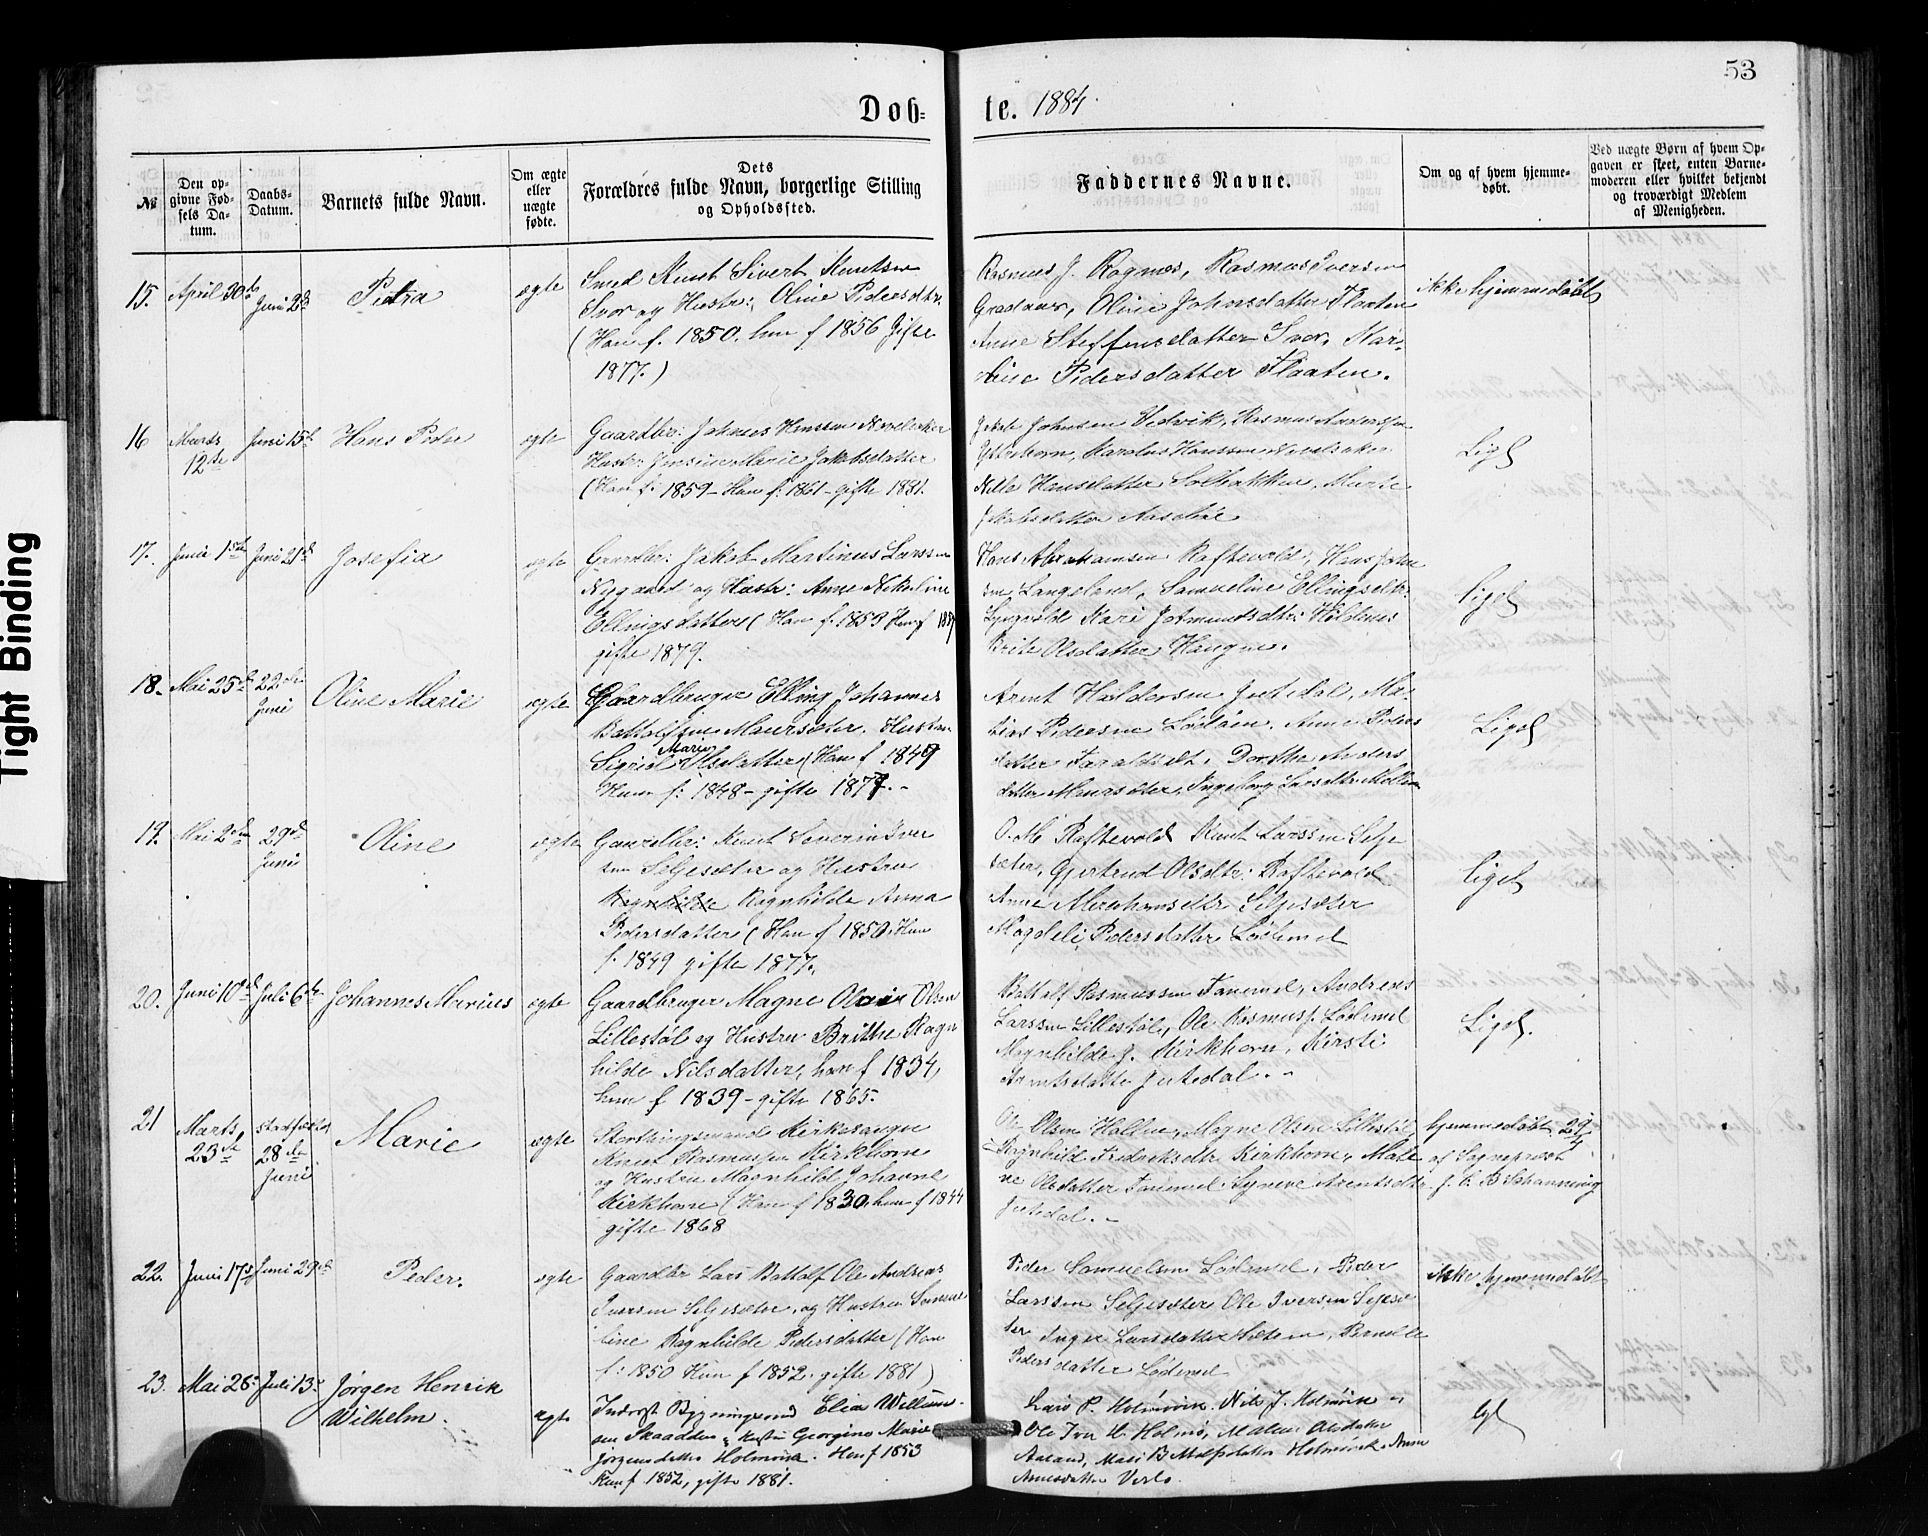 53
Døb=
te. 1884.
№
Den op-
givne Fød-
sels Da-
tum.
Daabs-
Datum.
Barnets fulde Navn.
Om ægte
eller
uægte
fødte.
Dets
Forældres fulde Navn, borgerlige Stilling
og Opholdssted.
Faddernes Navne.
Om og af hvem hjemme-
døbt.
Ved uægte Børn af hvem Op-
gaven er skeet, enten Barne-
moderen eller hvilket bekjendt
og troværdigt Medlem
af Menigheden.
15. April 30te Juni 2d Petra ægte
Smed Knut Sivert Knutsen
Svor og Hustr: Oline Pedersdtr.
(Han f. 1850. hun f 1856 Gifte
1877.)
Rasmus J. Rognes, Rasmus Iversen
Oline Johnsdatter Flaaten
Anne Steffensdatter Svor, Mar-
Pedersdatter Flaaten.
ikke hjemmedøbt
16 Marts
12te
Juni 15de Hans Peder ægte
Gaardbr: Johnnes Hanssen
Hustr Jensine Marie Jakobsdatter
(Han f: 1859 – Hun f: 1861 – gifte 1881.
Johnsen Vedvik, Rasmus Anderssen
Ytrehorn, Karolus Hanssen
Nille Hansdatter Solbakken, Marte
Jakobsdatter
Ligel
17. Juni 1ste Juni 21d Josefia ægte
Gaardbr: Jakob Martinus Larssen
Nygaard og Hustr: Anne Nikoline
Ellingsdatter (Han f. 1853 Hun f
gifte 1879.
Hans Abrahamsen Raftevold, Hans John
sen Langeland, Samueline Ellingsdtr:
Kari
Brite Olsdatter Haugen.
ligel
18. Mai 25de 22de
Juni
Oline Marie ægte
Gaardbruger Elling Johannes
Battolfsen Maursæter. Hustru
Marie
Sigrid Olsdatter (Han f 1849
Hun f: 1848 – gifte 1877. -
Arnt Haldorsen Jutedal, Ma-
tias Pedersen Lødøen. Anne Peders
datter Dorthe Anders
datter Maursæter, Ingeborg Larsdtr
Ligel
19. Mai 2den 29de
Juni
Oline ægte
Gaardbr: Knut Severin Iver
sen Seljesæter og Hustru
Ragnhilde Ragnhilde Anna
Pedersdatter (Han f 1850. Hun
f. 1849 gifte 1877.
O. M. Raftevold Knut Larssen Selje
sæter, Gjertrud Olsdtr: Raftevold
Anne Seljesæter
Magdeli Pedersdatter Lødemel
ligel
20. Juni 10de Juli 6te Johannes Marius ægte
Gaardbruger Magne Olsen
Lillestøl og Hustru Brithe Ragn
hilde Nilsdatter, han f 1834,
hun f 1839 – gifte 1865.
Battolf Rasmussen Tanemel, Andreas
Larssen Lillestøl, Ole Rasmuss. Lødemel
Magnhilde J. Kirkhorn, Kirsti
Arntsdatter Jutedal. -
Ligel.
21 Marts
23de
stadfæstet
28de
Juni
Marie ægte
Storthingsmand Kirkesanger
Knut Rasmussen Kirkhorn
og Hustru Magnhild Johanne
Kirkhorn (Han f 1830, hun f 1844
gifte 1868
Ole Olsen Holden, Magne Olsen Lillestøl
Ragnhild Fredriksdtr Kirkhorn, Male
ne Olsdatter Tanemel Synneve Arentsdtr
Jutedal. -
hjemmedøbt 29/4
af Sogneprest
22. Juni 17d Juni 29de Peder. ægte
Gaardbr Lars Battolf Ole Andreas
Iversen Seljesæter, og Hustru Samue
line Ragnhilde Pedersdatter (Han
f: 1850 Hun f 1852. gifte 1881)
Peder Samuelsen Lødemel, Peder
Larssen Seljesæter Ole Iversen Seljesæ
ter Inger Larsdatter Sætren, Pernille
Pedersdatter Lødemel
ikke hjemmedøbt
23. Mai 28de Juli 13de Jørgen Henrik
Wilhelm. ægte
Inderst Bygningsmd Elia Willum-
sen Skaadden, Hustru Georgine Marie
Jørgensdatter Holmøra. Han f 1853
Hun f 1852, gifte 1881.
Lars P. Holmøvik. Nils J. Holmøvik
Ole Iver H Holmø, Malene Olsdatter
Aaland, Mari Battolfsdatter Holmøvik. Anne
Arnesdatter
lgl
Tight Binding